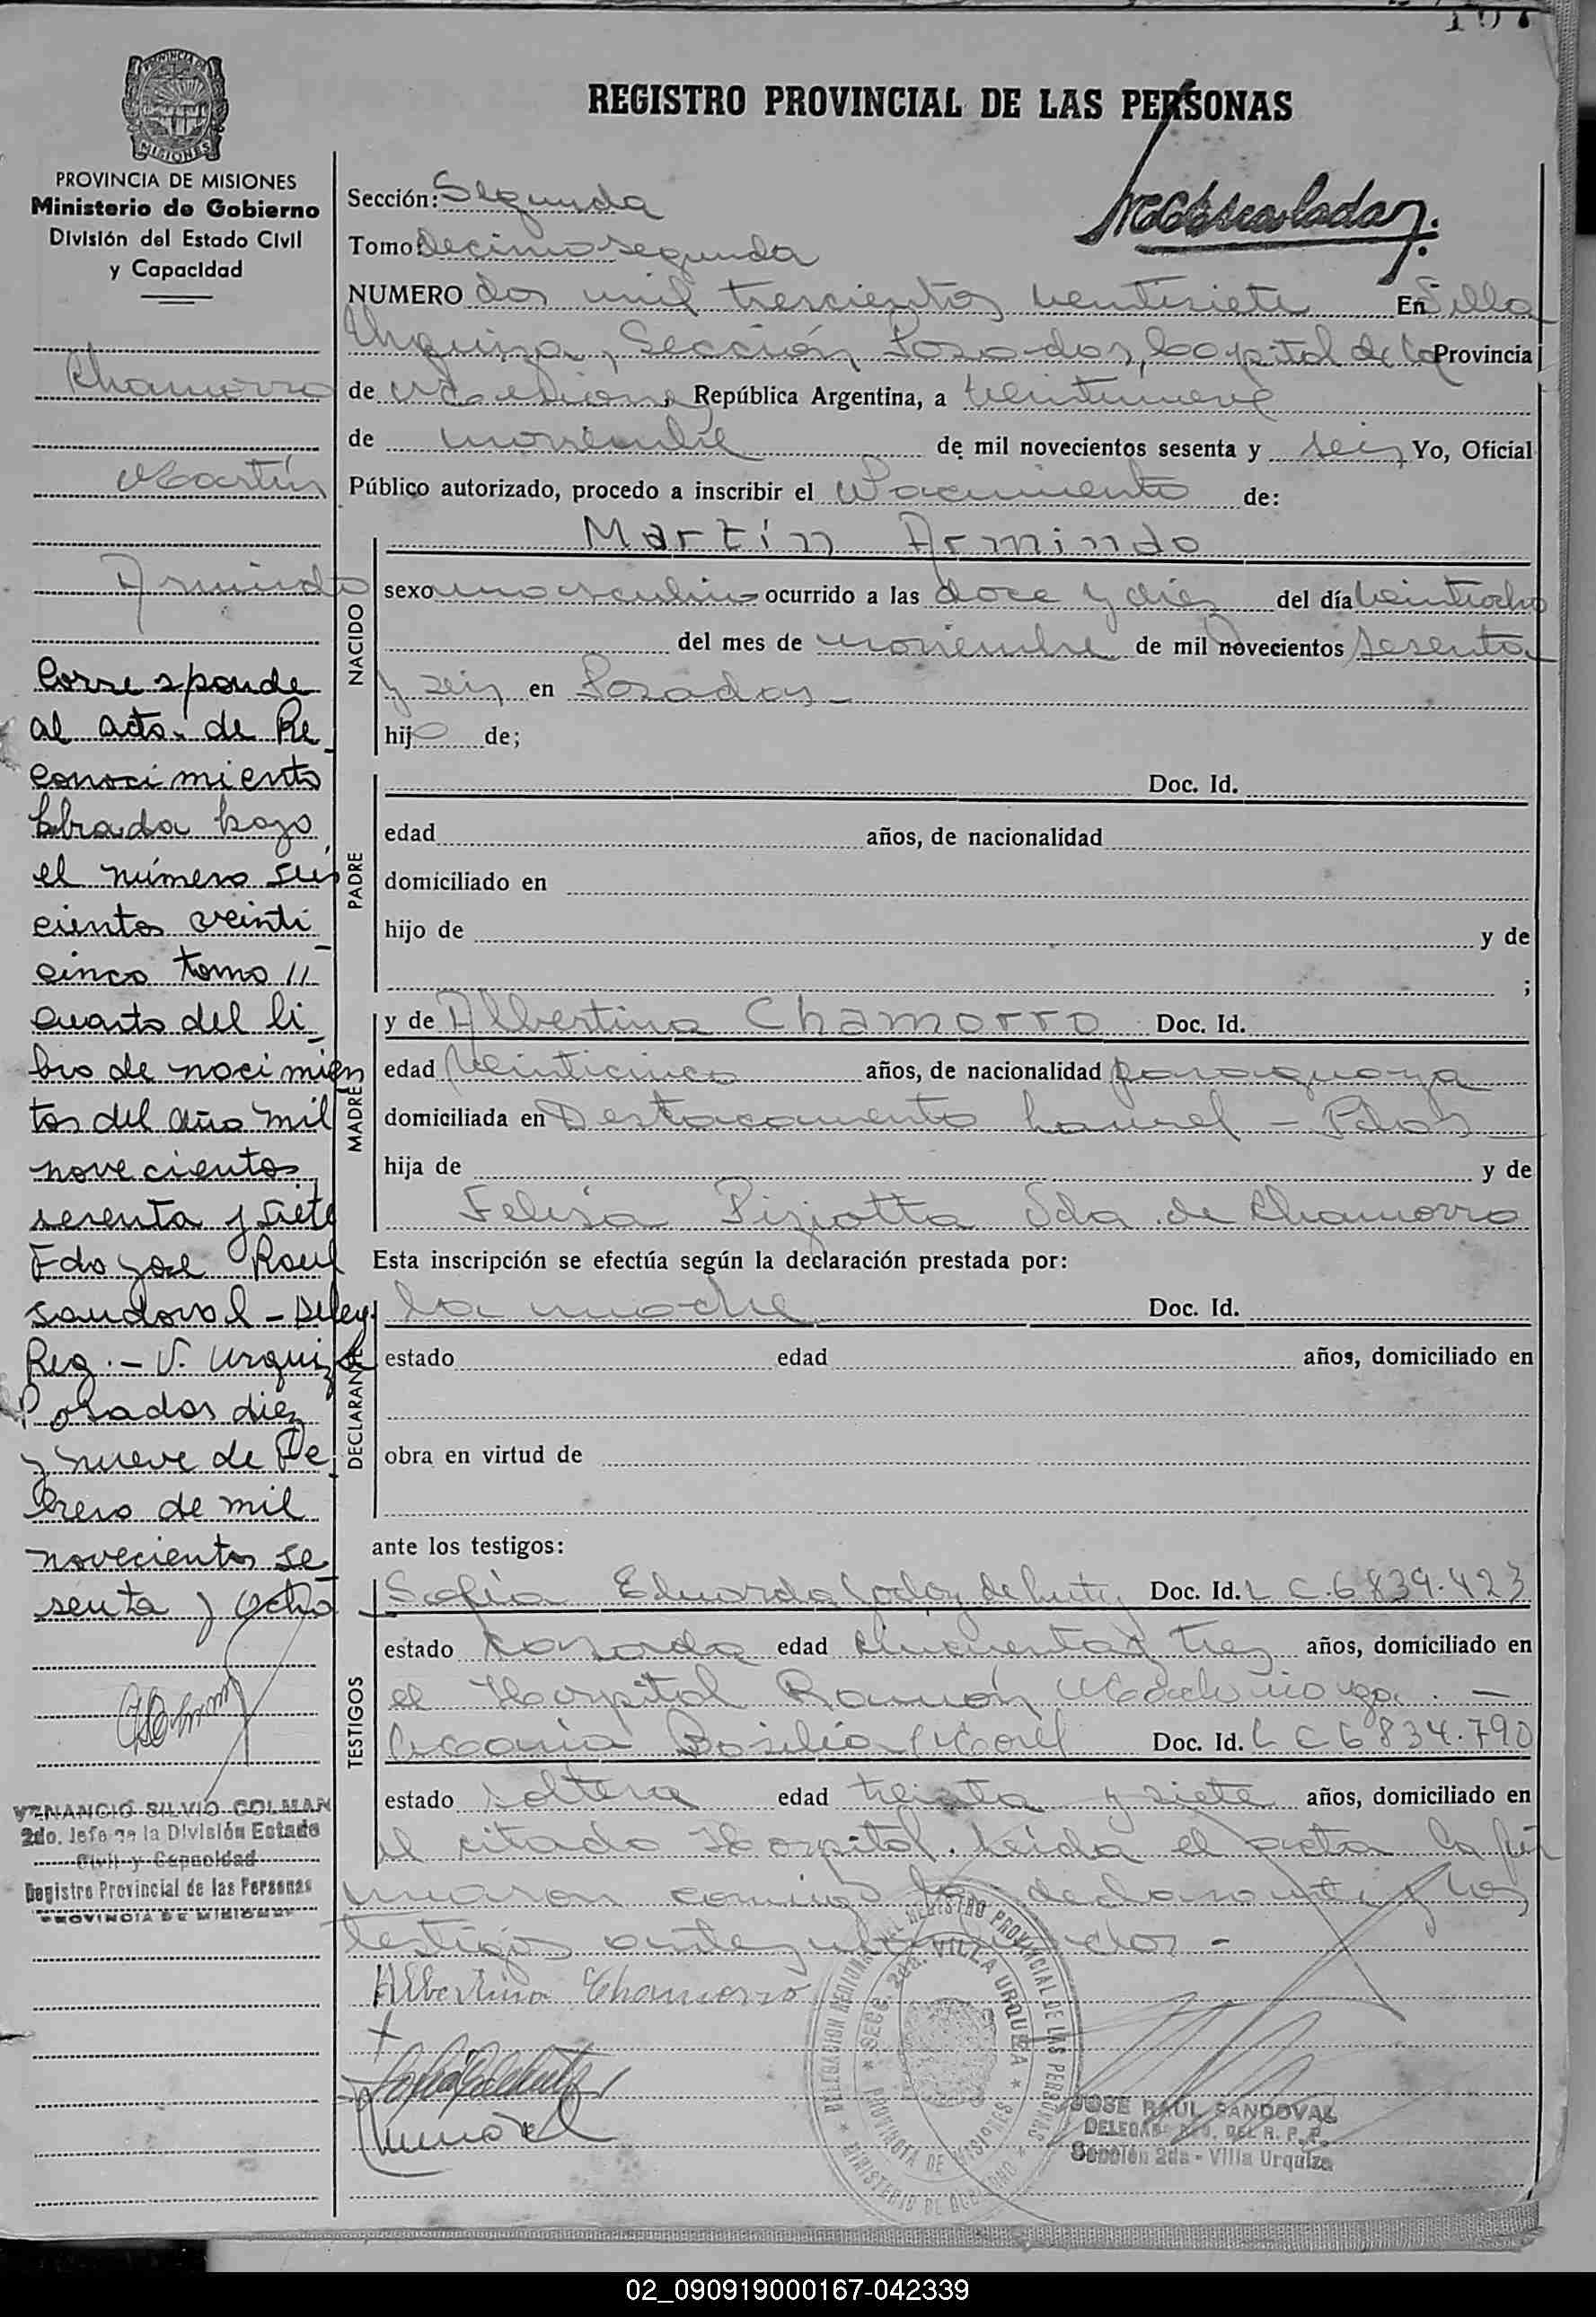 167
PROVINCIA DE MISIONES
MISIONES
PROVINCIA DE MISIONES
Ministerio de Gobierno
División del Estado Civil
y Capacidad
Chamorro
Martín
Armindo
Corresponde
al acta de Re
conocimiento
labrada bajo
el número seis
cientos veinti
cinco tomo
cuarto del li
bro de nacimien
tos del año mil
novecientos
sesenta y siete
Fdo José Raul
Sandoval - Deleg.
Reg. - V. Urquiza
Posadas diez
y nueve de Fe
brero de mil
novecientos se
senta y ocho
VENANCIO SILVIO COLMAN
2do. Jefe de la División Estado
Civil y Capacidad
Registro Provincial de las Personas
PROVINCIA DE MISIONES
REGISTRO PROVINCIAL DE LAS PERSONAS
Sección: Segunda
Tomo: Decimo segundo
NUMERO dos mil trescientos veintisiete En Villa
Urquiza, Sección Posadas, Capital de la Provincia
de Misiones, República Argentina, a veintinueve
de noviembre de mil novecientos sesenta y seis Yo, Oficial
Público autorizado, procedo a inscribir el Nacimiento de:
NACIDO
Martín Armindo
sexo masculino ocurrido a las doce y diez del día veintiocho
del mes de noviembre de mil novecientos sesenta
y seis en Posadas
hijo de;
PADRE
Doc. Id.
edad años, de nacionalidad
domiciliado en
hijo de y de
;
MADRE
y de Albertina Chamorro Doc. Id.
edad veinticinco años, de nacionalidad paraguaya
domiciliada en Destacamento Laurel - Pdas
hija de y de
Felisa Vda. de Chamorro
Esta inscripción se efectúa según la declaración prestada por:
DECLARANTE
la madre Doc. Id.
estado edad años, domiciliado en
obra en virtud de
ante los testigos:
TESTIGOS
Sofía Eduarda Godoy de Doc. Id. L C. 6839.423
estado casada edad cincuenta y tres años, domiciliado en
el Hospital Ramón Madariaga. -
María Basilia Morel Doc. Id. L C 6834.790
estado soltera edad treinta y siete años, domiciliado en
el citado Hospital. Leída el acta la fir
maron conmigo la declarante y los
testigos antes mencionados -
Albertina Chamorro
DELEGACION REGIONAL DEL REGISTRO PROVINCIAL DE LAS PERSONAS
SECC. 2da. VILLA URQUIZA
PROVINCIA DE MISIONES
MINISTERIO DE GOBIERNO
JOSE RAUL SANDOVAL
DELEGADO REG. DEL R. P. P.
Sección 2da - Villa Urquiza
02_090919000167-042339